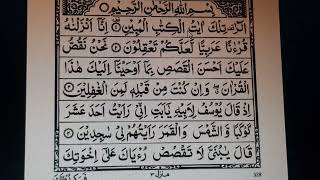 بِسْمِ اللهِ الرَّحْمٰنِ الرَّحِيْمِ
الٓرٰ تِلْكَ اٰيٰتُ الْكِتٰبِ الْمُبِيْنِ اِنَّآ اَنْزَلْنٰهُ
قُرْءٰنًا عَرَبِيًّا لَّعَلَّكُمْ تَعْقِلُوْنَ نَحْنُ نَقُصُّ
عَلَيْكَ اَحْسَنَ الْقَصَصِ بِمَآ اَوْحَيْنَآ اِلَيْكَ هٰذَا
الْقُرْاٰنَ وَاِنْ كُنْتَ مِنْ قَبْلِهٖ لَمِنَ الْغٰفِلِيْنَ
اِذْ قَالَ يُوْسُفُ لِاَبِيْهِ يٰٓاَبَتِ اِنِّيْ رَاَيْتُ اَحَدَ عَشَرَ
كَوْكَبًا وَّالشَّمْسَ وَالْقَمَرَ رَاَيْتُهُمْ لِيْ سٰجِدِيْنَ
قَالَ يٰبُنَيَّ لَا تَقْصُصْ رُءْيَاكَ عَلٰٓى اِخْوَتِكَ